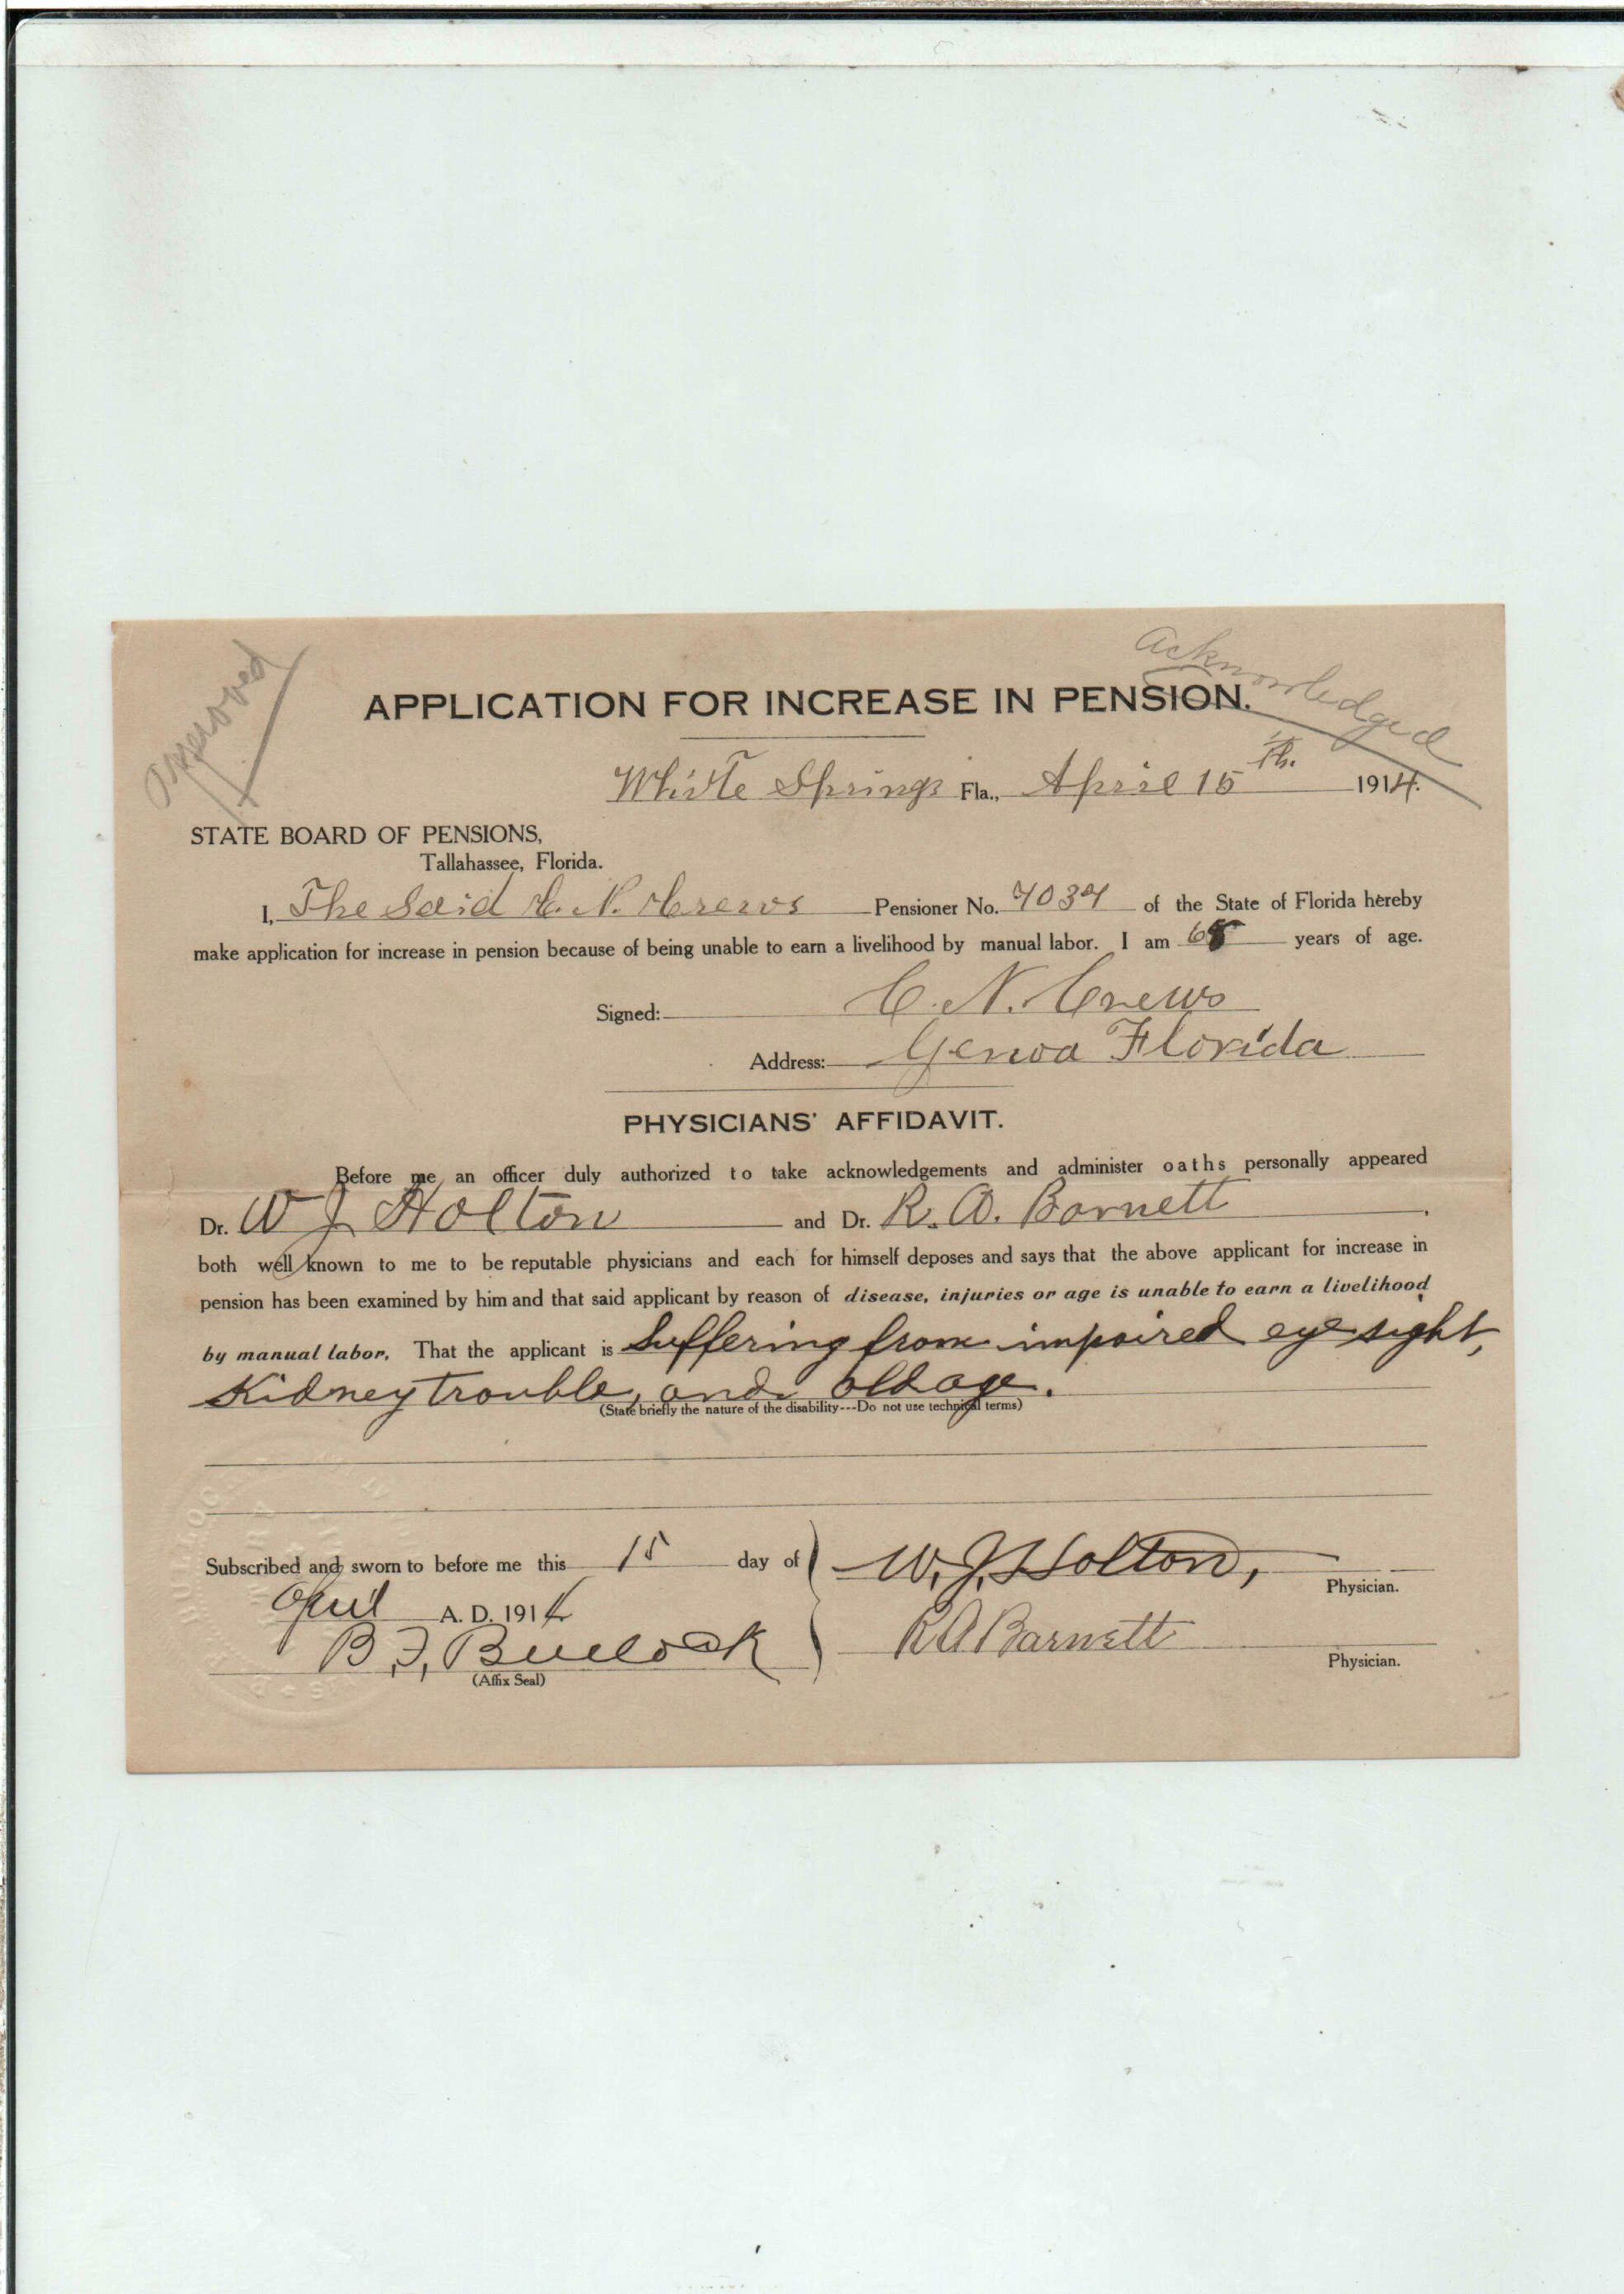 Approved
Acknowledged
APPLICATION FOR INCREASE IN PENSION.
White Springs Fla., April 15th. 1914.
STATE BOARD OF PENSIONS,
Tallahassee, Florida.
I, The Said C. N. Crews Pensioner No. of the State of Florida hereby
make application for increase in pension because of being unable to earn a livelihood by manual labor. I am years of age.
Signed: C. N. Crews
Address: Genoa Florida
PHYSICIANS' AFFIDAVIT.
Before me an officer duly authorized to take acknowledgements and administer oaths personally appeared
Dr. W J Holton and Dr. R. A. Barnett.
both well known to me to be reputable physicians and each for himself deposes and says that the above applicant for increase in
pension has been examined by him and that said applicant by reason of disease, injuries or age is unable to earn a livelihood
by manual labor. That the applicant is Suffering from impaired eye sight,
Kidney trouble, and old age.
(State briefly the nature of the disability---Do not use technical terms)
Subscribed and sworn to before me this 15 day of W. J. Holton, Physician.
April A. D. 1914
B. F. Bullock R A Barnett Physician.
(Affix Seal)